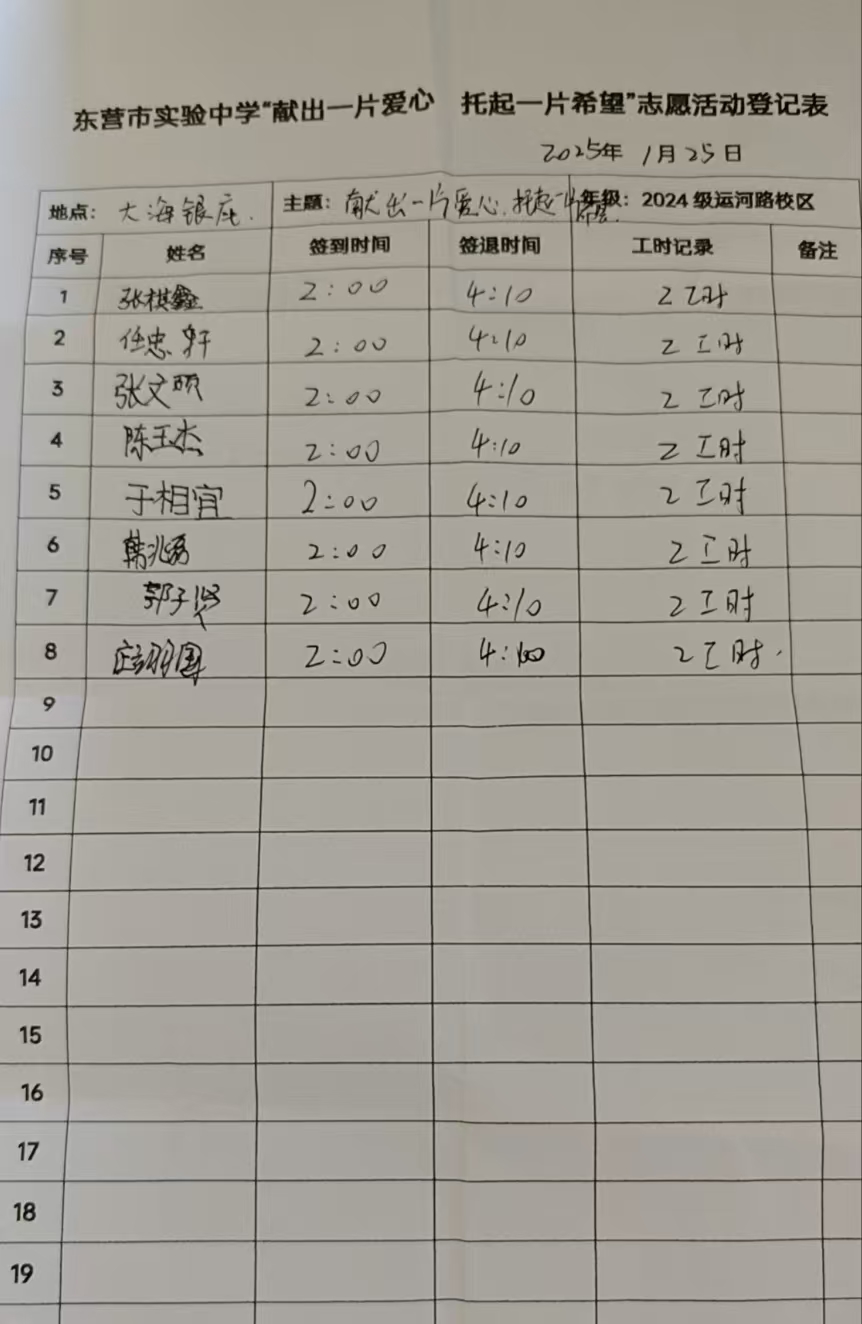 东营市实验中学“献出一片爱心 托起一片希望”志愿活动登记表
2025年 1月25日
地点: 大海银座. 主题: 献出一片爱心.托起一片希望 年级: 2024级运河路校区
序号 姓名 签到时间 签退时间 工时记录 备注
1 张棋鑫 2:00 4:10 2工时
2 任忠轩 2:00 4:10 2工时
3 张文硕 2:00 4:10 2工时
4 陈玉杰 2:00 4:10 2工时
5 于相宜 2:00 4:10 2工时
6 韩兆 2:00 4:10 2工时
7 郭子 2:00 4:10 2工时
8 2:00 4: 2工时.
9
10
11
12
13
14
15
16
17
18
19